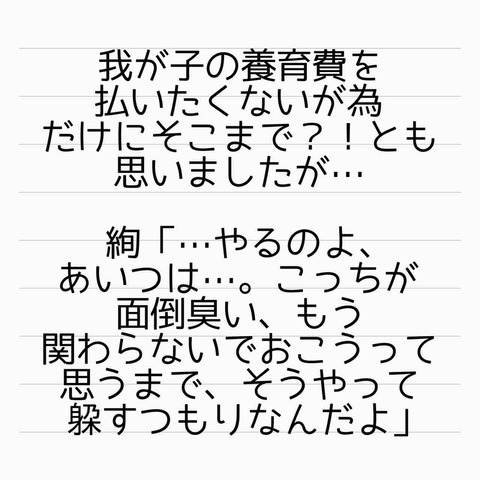 我が子の養育費を
払いたくないが為
だけにそこまで？！とも
思いましたが…
絢「…やるのよ、
あいつは…。こっちが
面倒臭い、もう
関わらないでおこうって
思うまで、そうやって
躱すつもりなんだよ」